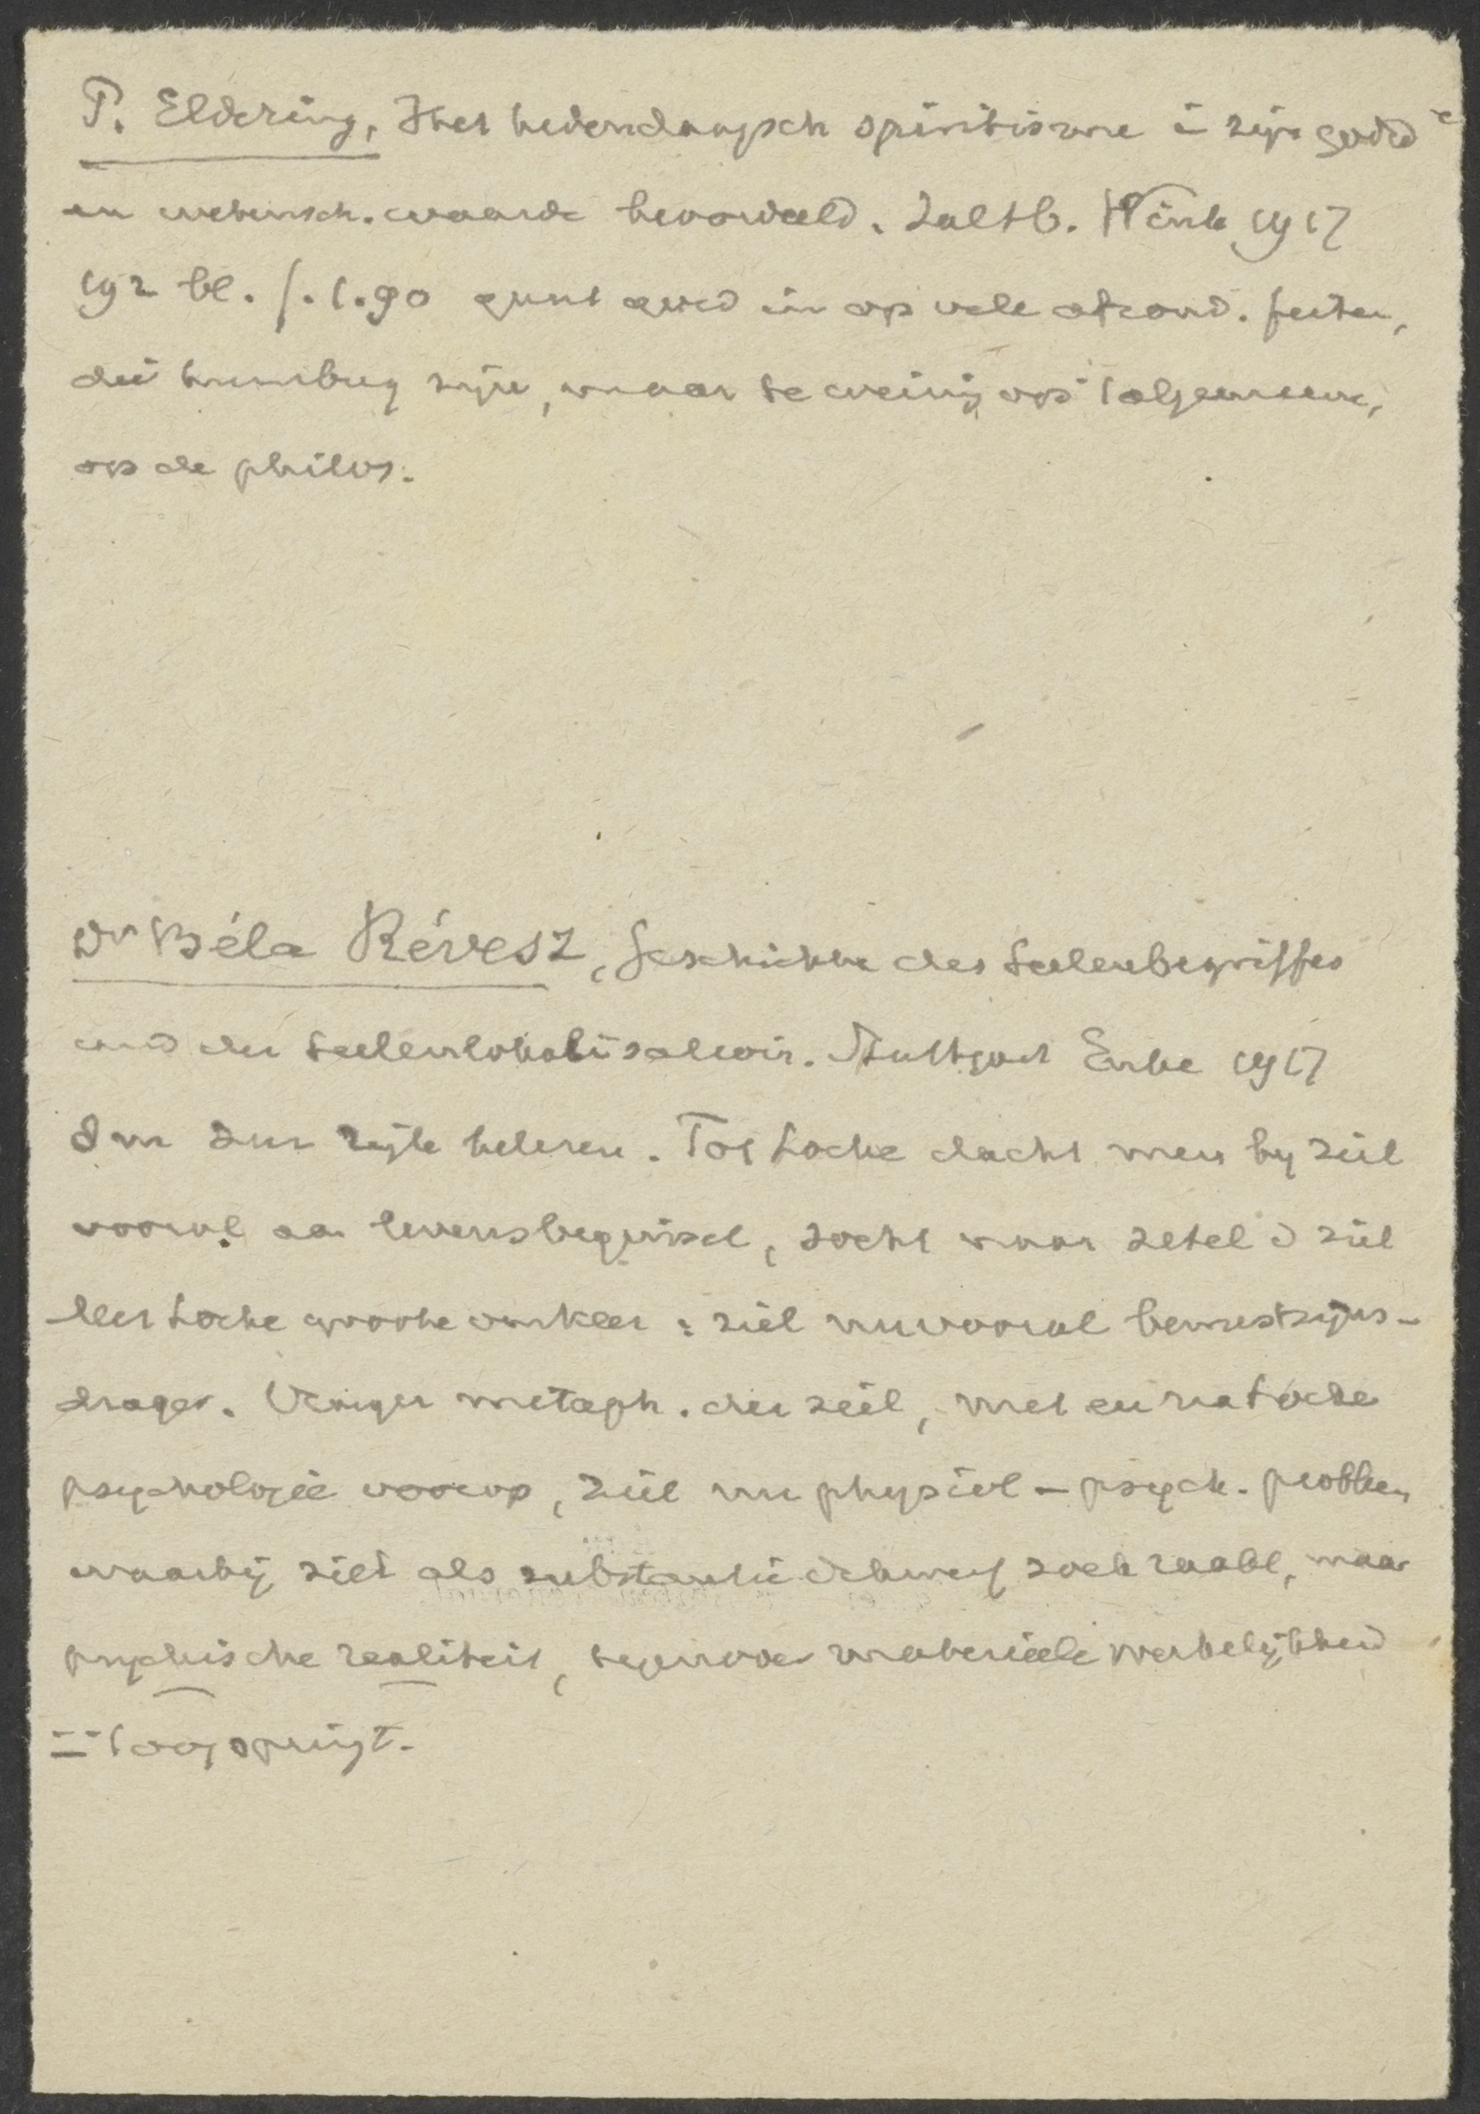 P. Eldering, Het hedendaagsch spiritisme i zijn godsd
en wetensch. waarde beoordeeld. Zaltb. Nink 1917
192 bl. f. 1.90 gaat goed in op vele afzond. feiten,
die humbug zijn, maar te weinig op 't algemeene,
op de philos.
Dr Béla Révész, Geschichte des Seelenbegriffes
und der Seelenlokalisation. Stuttgart Enke 1917
Tot Locke dacht men bij ziel
vooral aan levensbeginsel, zocht naar zetel d ziel
Met Locke groote omkeer: ziel nu vooral bewustzijns-
drager. Vroeger metaph. der ziel, met en na Locke
psychologie voorop, ziel nu physiol - psych. probleem
waarbij ziel als substantie zoek raakt, maar
psychische realiteit, tegenover materieele werkelijkheid
in 't oog springt.